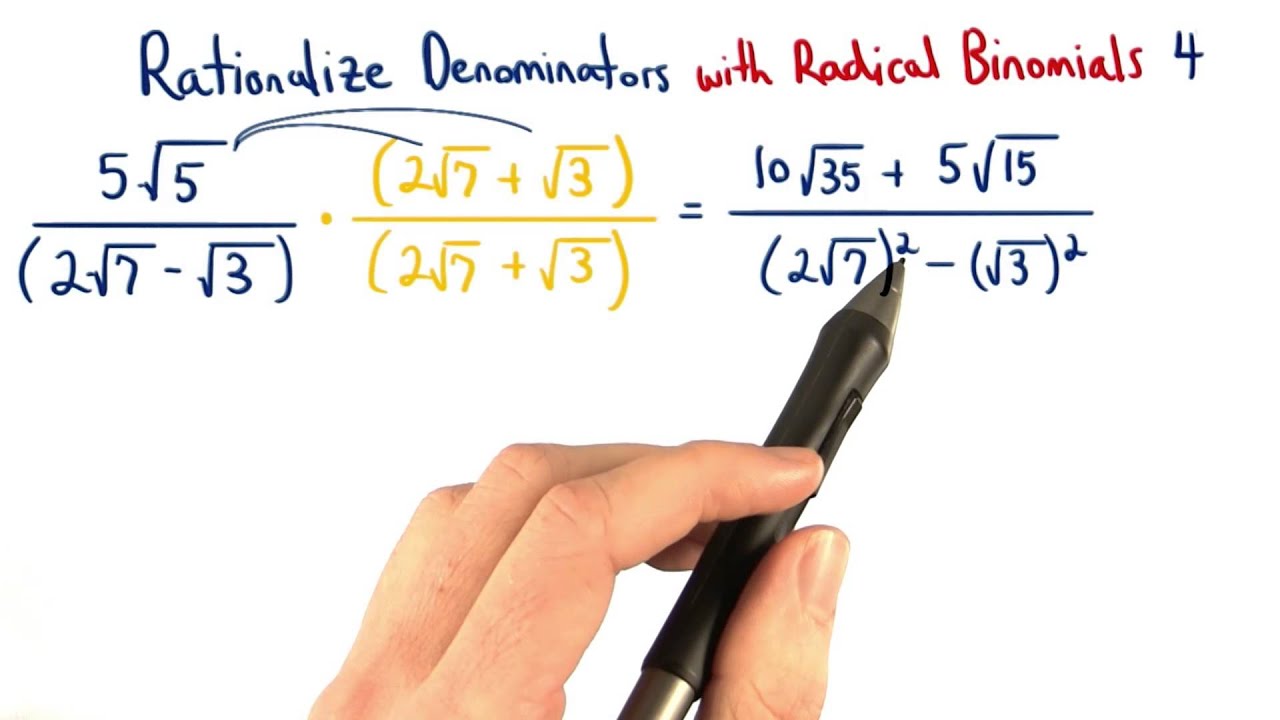 Rationalize Denominators with Radical Binomials 4
5√5 / (2√7 - √3) · (2√7 + √3) / (2√7 + √3) = 10√35 + 5√15 / (2√7)² - (√3)²